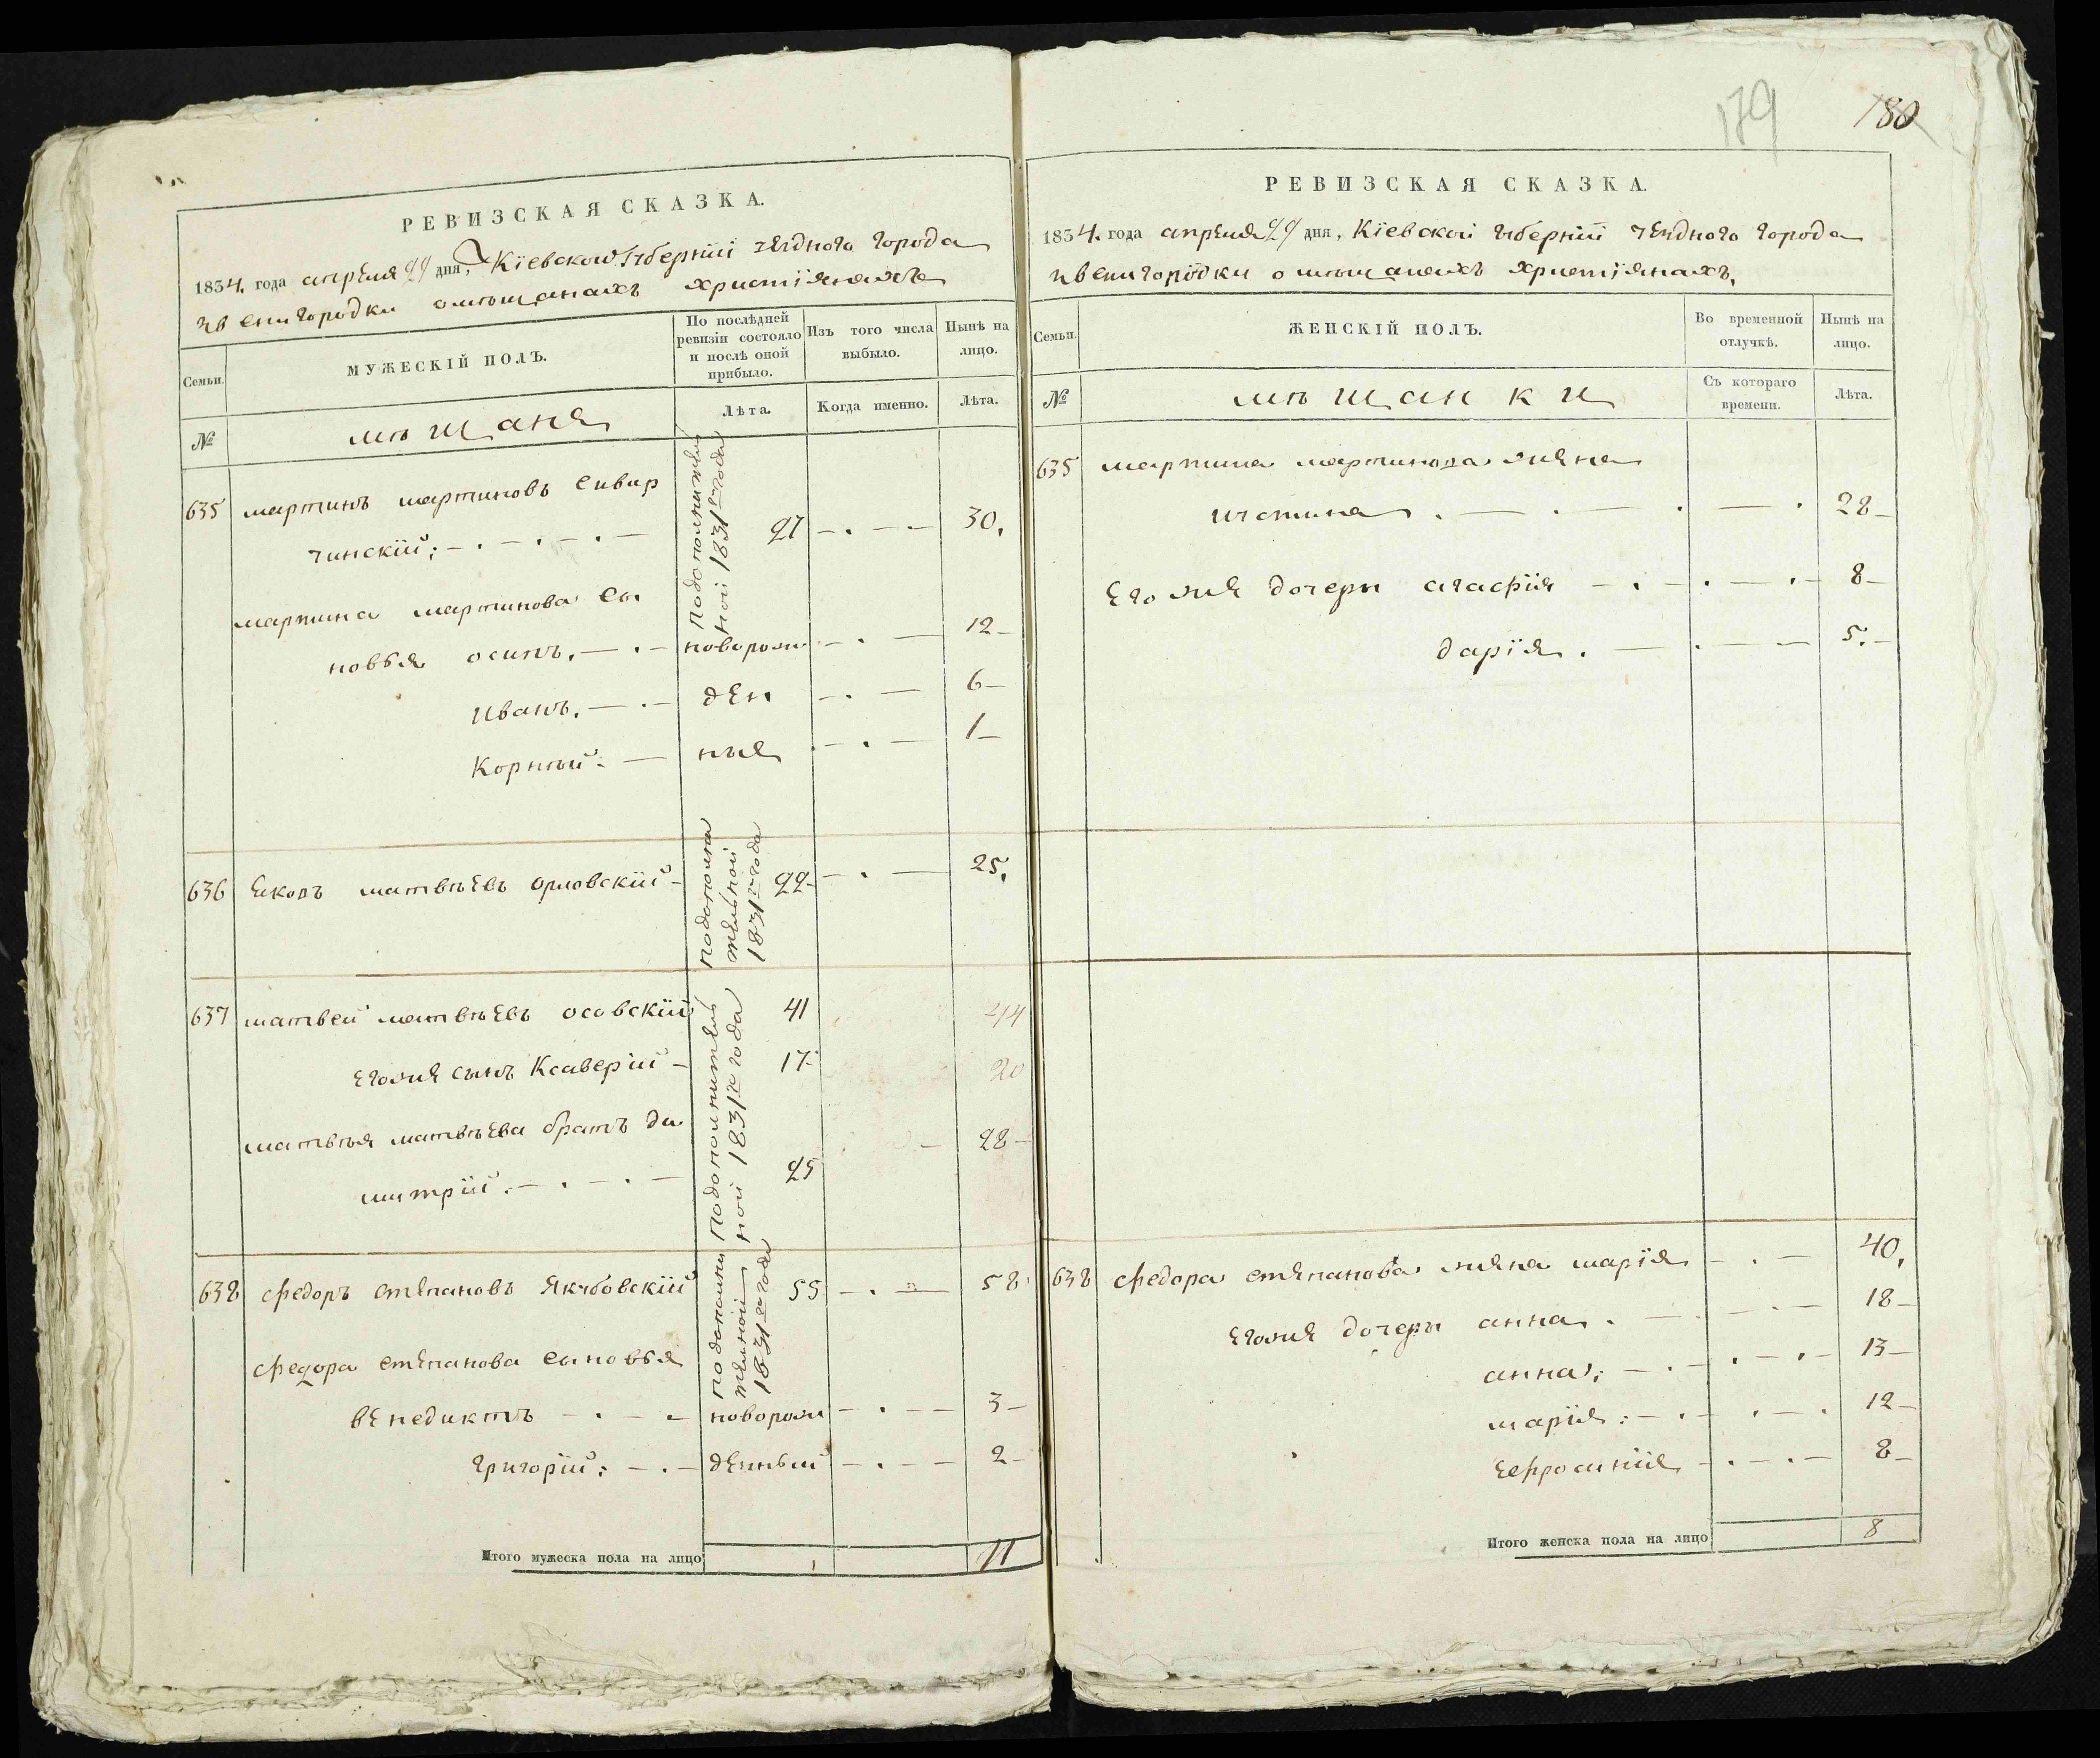 РЕВИЗСКАЯ СКАЗКА.
1834. года апреля 29 дня, Кіевской Губерніи уезднаго города
Звенигородки о мѣщанахъ христіянахъ
Семьи.
МУЖЕСКІЙ ПОЛЪ.
По послѣдней ревизіи состояло и послѣ оной прибыло.
Изъ того числа выбыло.
Нынѣ на лицо.
№
мѣщане
Лѣта.
Когда именно.
Лѣта.
635 мартинъ мартиновъ Сивир
чинскій; 27 30.
подополнитель
ной 1831го года
мартина мартинова сы
новья осипъ. новорож 12
Иванъ. ден 6
Корный. ныя 1
636 Яковъ матвѣевъ орловскій 22 25.
подополни
тельной
1831го года
637 матвей матвѣевъ осовскій 41 44
егоже сынъ Ксаверій 17 20
матвѣя матвѣева братъ ди
митрій. 25 28
подополнитель
ной 1831го года
638 федоръ степановъ Якубовскій 55 58
подополни
тельной
1831го года
федора степанова сыновья
венедиктъ новорож 3
григорій; денный 2
Итого мужеска пола на лицо 11
179
180
РЕВИЗСКАЯ СКАЗКА.
1834. года апреля 29 дня, Кіевской губерніи уезднаго города
звенигородки о мѣщанахъ христіянахъ.
Семьи.
ЖЕНСКІЙ ПОЛЪ.
Во временной отлучкѣ.
Нынѣ на лицо.
№
мѣщанки
Съ котораго времени.
Лѣта.
635 мартина мартинова жена
иустина 28
Его же дочери агафія 8
дарія. 5.
638 федора степанова жена марія 40.
егоже дочери анна. 18
анна; 13
марія: 12
ефросинія 8
Итого женска пола на лицо 8